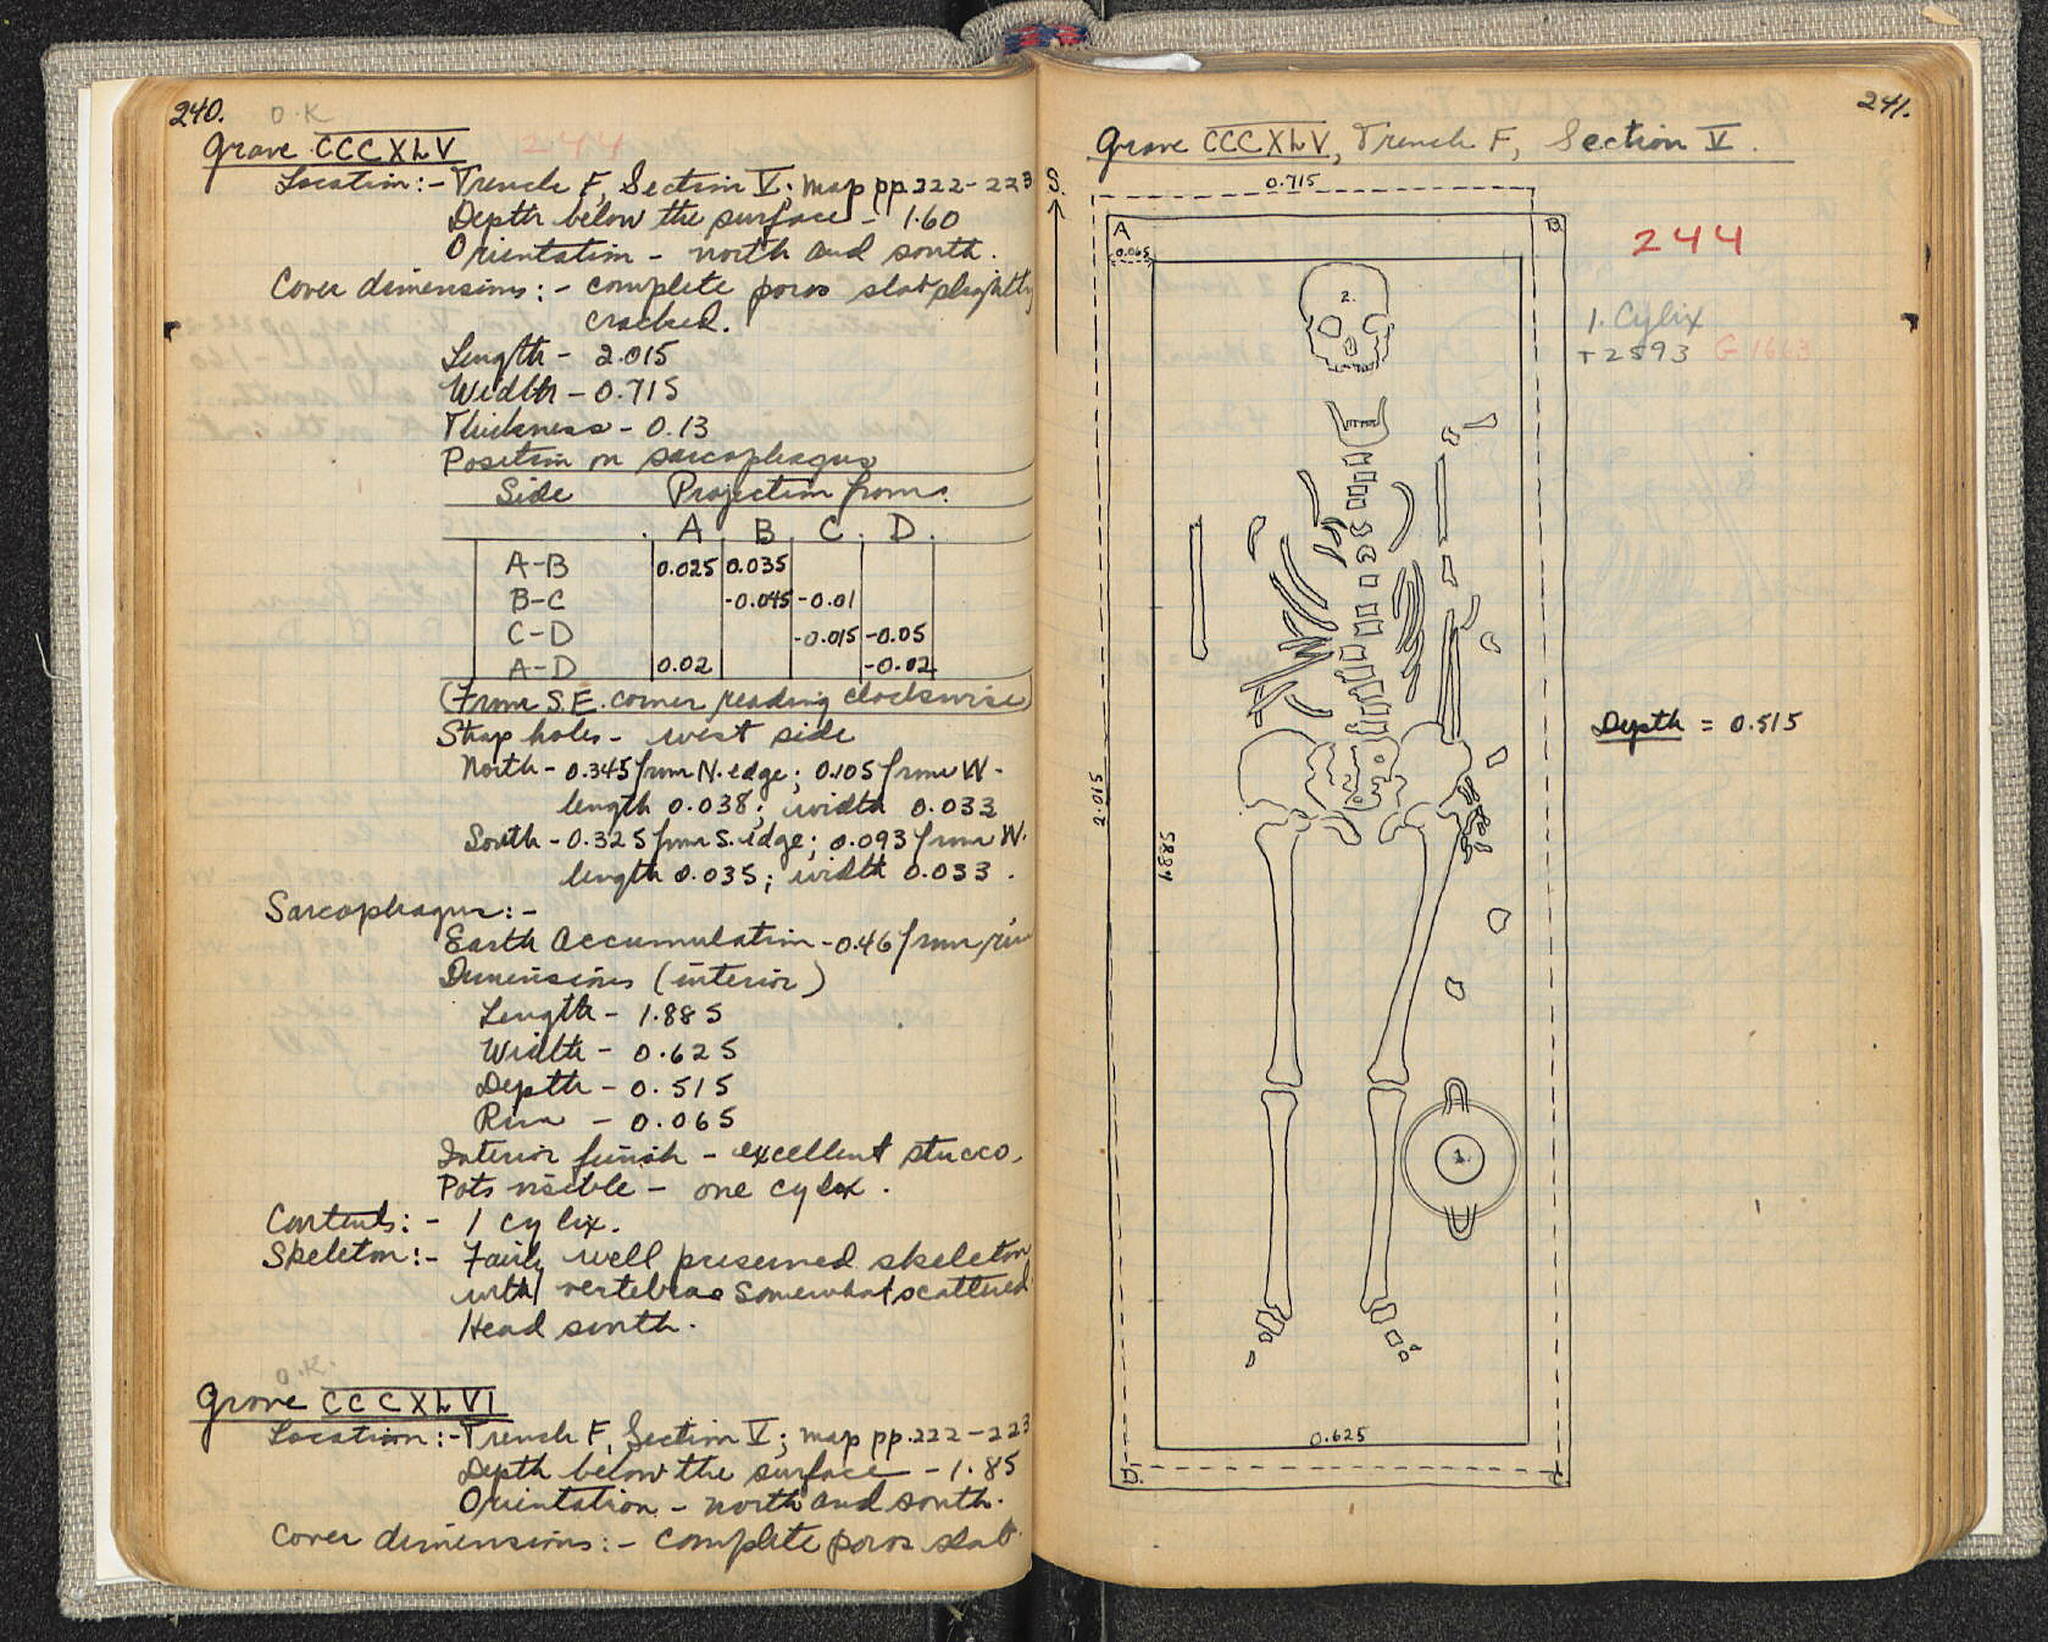 240. O.K
Grave CCCXLV 244
Location:- Trench F, Section V; map pp 222-223
Depth below the surface - 1.60
Orientation - north and south.
Cover dimensions:- complete poros slab slightly
cracked.
Length - 2.015
Width - 0.715
Thickness - 0.13
Position on sarcophagus
Side Projection from:
A B C D
A-B 0.025 0.035
B-C -0.045 -0.01
C-D -0.015 -0.05
A-D 0.02 -0.02
(From S.E. corner reading clockwise)
Strap holes - west side
North - 0.345 from N. edge; 0.105 from W-
length 0.038; width 0.033
South - 0.325 from S. edge; 0.093 from W.
length 0.035; width 0.033.
Sarcophagus:-
Earth Accumulation - 0.46 from rim
Dimensions (interior)
Length - 1.885
Width - 0.625
Depth - 0.515
Rim - 0.065
Interior finish - excellent stucco.
Pots visible - one cylix.
Contents:- 1 cylix.
Skeleton:- Fairly well preserved skeleton
with vertebrae somewhat scattered
Head south.
O.K.
Grave CCCXLVI
Location:- Trench F, Section V; map pp. 222-223
Depth below the surface - 1.85
Orientation - north and south.
Cover dimensions:- complete poros slab
241.
Grave CCCXLV, Trench F, Section V.
S.
0.715
A B.
0.065
244
2.
1. Cylix
T2593
Depth = 0.515
2.015
1.885
1.
0.625
D. C.